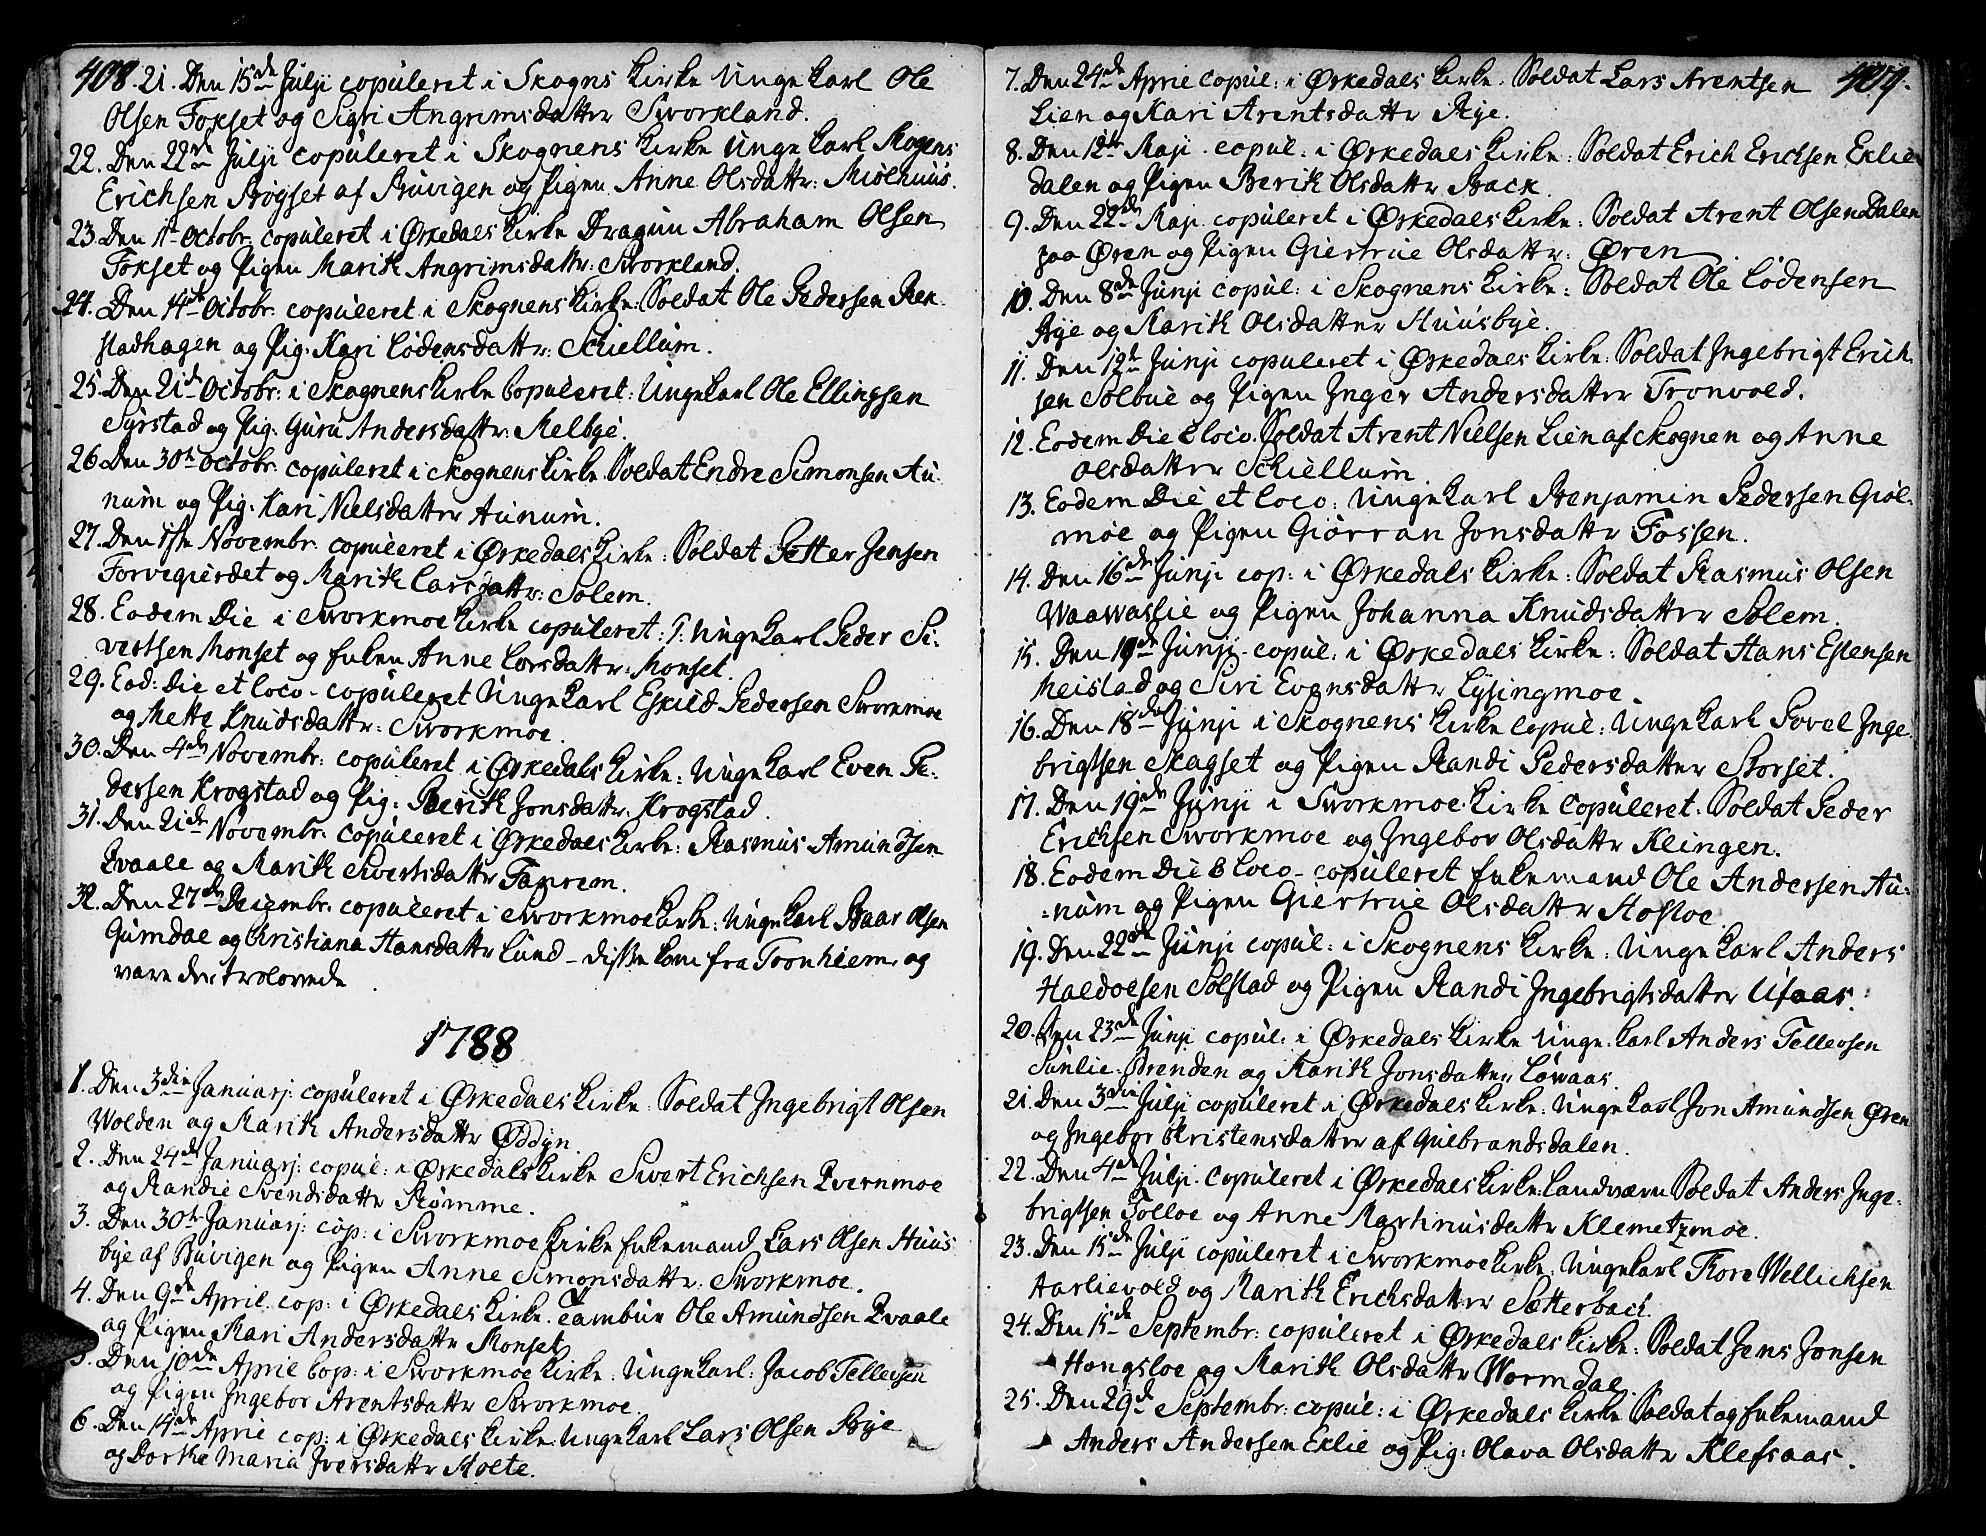 408. 21. Den 15de Julji copuleret i Skogns Kirke Unge Karl Ole
Olsen Fokset og Sigri Angrimsdatter Sworkland.
22. Den 22de Julji copuleret i Skognens Kirke Unge Karl Mogens
Erichsen Brøgset af Buvigen og Pigen Anne Olsdattr: Miølhuus.
23. Den 1te Octobr. copuleret i Ørkedals Kirke Dragun Abraham Olsen
Fokset og Pigen Marith Angrimsdattr: Sworkland.
24. Den 14de Octobr. copuleret i Skognens Kirke: Soldat Ole Pedersen Rek-
stadhagen og Pig: Kari Lodensdattr: Schiellum.
25. Den 21de Octobr: i Skognens Kirke Copuleret: Unge Karl Ole Ellingsen
Syrstad og Pig: Guru Andersdattr: Melbye.
26. Den 30te Octobr: copuleret i Skognens Kirke. Soldat Endre Simonsen Au-
num og Pig: Kari Nielsdatter Aunum.
27. Den 1ste Novembr. copuleret i Ørkedals Kirke: Soldat Petter Jensen
Forvegierdet og Marith Larsdattr: Solem.
28. Eodem Die i Sworkmoe Kirke copuleret: Unge Karl Peder Si-
vertsen Monset og Enken Anne Larsdattr: Monset.
29. Eod: Die et Loco - copuleret Unge Karl Eskild Pedersen Sworkmoe
og Mette Knudsdattr: Sworkmoe.
30. Den 4de Novembr: copuleret i Ørkedals Kirke: Unge Karl Even Pe-
dersen Krogstad og Pig: Berith Jonsdattr: Krogstad.
31. Den 21de Novembr. copuleret i Ørkedals Kirke: Rasmus Amundsen
Qvaale og Marith Sivertsdattr Fanrem.
32. Den 27de Decembr. copuleret i Sworkmoe Kirke: Unge Karl Baar Olsen
Gumdal og Christiana Hansdattr Lund - disse kom fra Tronhiem og
vare der trolovede
1788
1. Den 3die Januarj: copuleret i Ørkedals Kirke: Soldat Ingebrigt Olsen
Wolden og Marith Andersdattr Øddyn.
2. Den 24de Januarj: copul: i Ørkedals Kirke Sivert Erichsen Qvernmoe
og Randie Svendsdattr Skømme.
3. Den 30te Januarj: cop: i Sworkmoe Kirke Enkemand Lars Olsen Huus
bye af Buvigen og Pigen Anne Simonsdattr. Sworkmoe.
4. Den 9de April. cop: i Ørkedals Kirke. Tambur Ole Amundsen Qvaale
og Pigen Mari Andersdattr Monset.
5. Den 10de April Cop: i Sworkmoe Kirke: Unge Karl: Jacob Tellevsen
og Pigen Ingebor Arentsdattr Sworkmoe.
6. Den 14de April cop: i Ørkedals Kirke: Unge Karl Lars Olsen Bye
og Dorthe Maria Iversdattr Holte.
409.
7. Den 24de April copul: i Ørkedals Kirke. Soldat Lars Arentsen
Lien og Kari Arentsdattr Rye.
8. Den 12te Maji. copul: i Ørkedals Kirke: Soldat Erich Erichsen Eklie
dalen og Pigen Berith Olsdattr Back.
9. Den 22de Maji copuleret i Ørkedals Kirke: Soldat Arent Olsen Dalen
paa Øren og Pigen Giertrue Olsdattr: Øren
10. Den 8de Junji copul: i Skognens Kirke: Soldat Ole Lodensen
Bye og Marith Olsdatter Huusbye.
11. Den 12te Junji copuleret i Ørkedals Kirke: Soldat Ingebrigt Erich
sen Solbue og Pigen Inger Andersdattr Tronvold.
12. Eodem Die & Loco. Soldat Arent Nielsen Lien af Skognen og Anne
Olsdatter Schiellum.
13. Eodem Die et Loco: Unge Karl Benjamin Pedersen Giøl-
moe og Pigen Giørran Jonsdattr Fossen.
14. Den 16de Junji cop: i Ørkedals Kirke: Soldat Rasmus Olsen
Waawaslie og Pigen Johanna Knudsdattr Solem.
15. Den 19de Junji. copul: i Ørkedals Kirke: Soldat Hans Estensen
Meistad og Siri Evensdattr Lysingmoe.
16. Den 18de Junji i Skognens Kirke Copul: Unge Karl Povel Inge
brigtsen Skagset og Pigen Randi Pedersdatter Storset.
17. Den 19de Junji i Sworkmoe Kirke Copuleret: Soldat Peder
Erichsen Sworkmoe og Ingebor Olsdattr Klingen.
18. Eodem Die & Loco - copuleret Enkemand Ole Andersen Au-
num og Pigen Giertrue Olsdattr Hosloe.
19. Den 22de Junji copul: i Skognens Kirke: Unge Karl Anders
Haldoesen Solstad og Pigen Randi Ingebrigtsdatter Ufaas.
20. Den 23de Junji copul: i Ørkedals Kirke Unge Karl Anders Tellevsen
Sunlie-Brenden og Marith Jonsdatter Løwaas.
21. Den 3die Julji copuleret i Ørkedals Kirke: Unge Karl Jon Amundsen Øren
og Ingebor Kristensdatter af Gulbrandsdalen.
22. Den 4de Julji. Copuleret i Ørkedals Kirke Landværn Soldat Anders Inge-
brigtsen Tolloe og Anne Martinusdattr Klemetzmoe.
23. Den 15de Julji copuleret i Sworkmoe Kirke: Unge Karl Thore Wellichsen
Aarlievold og Marith Erichsdatter Sætterbach.
24. Den 15de Septembr: copuleret i Ørkedals Kirke: Soldat Jens Jonsen
Hongsloe og Marith Olsdattr Wormdal.
25. Den 29de Septembr: copul: i Ørkedals Kirke Soldat og Enkemand
Anders Andersen Eklie og Pig: Olava Olsdattr Klefsaas.